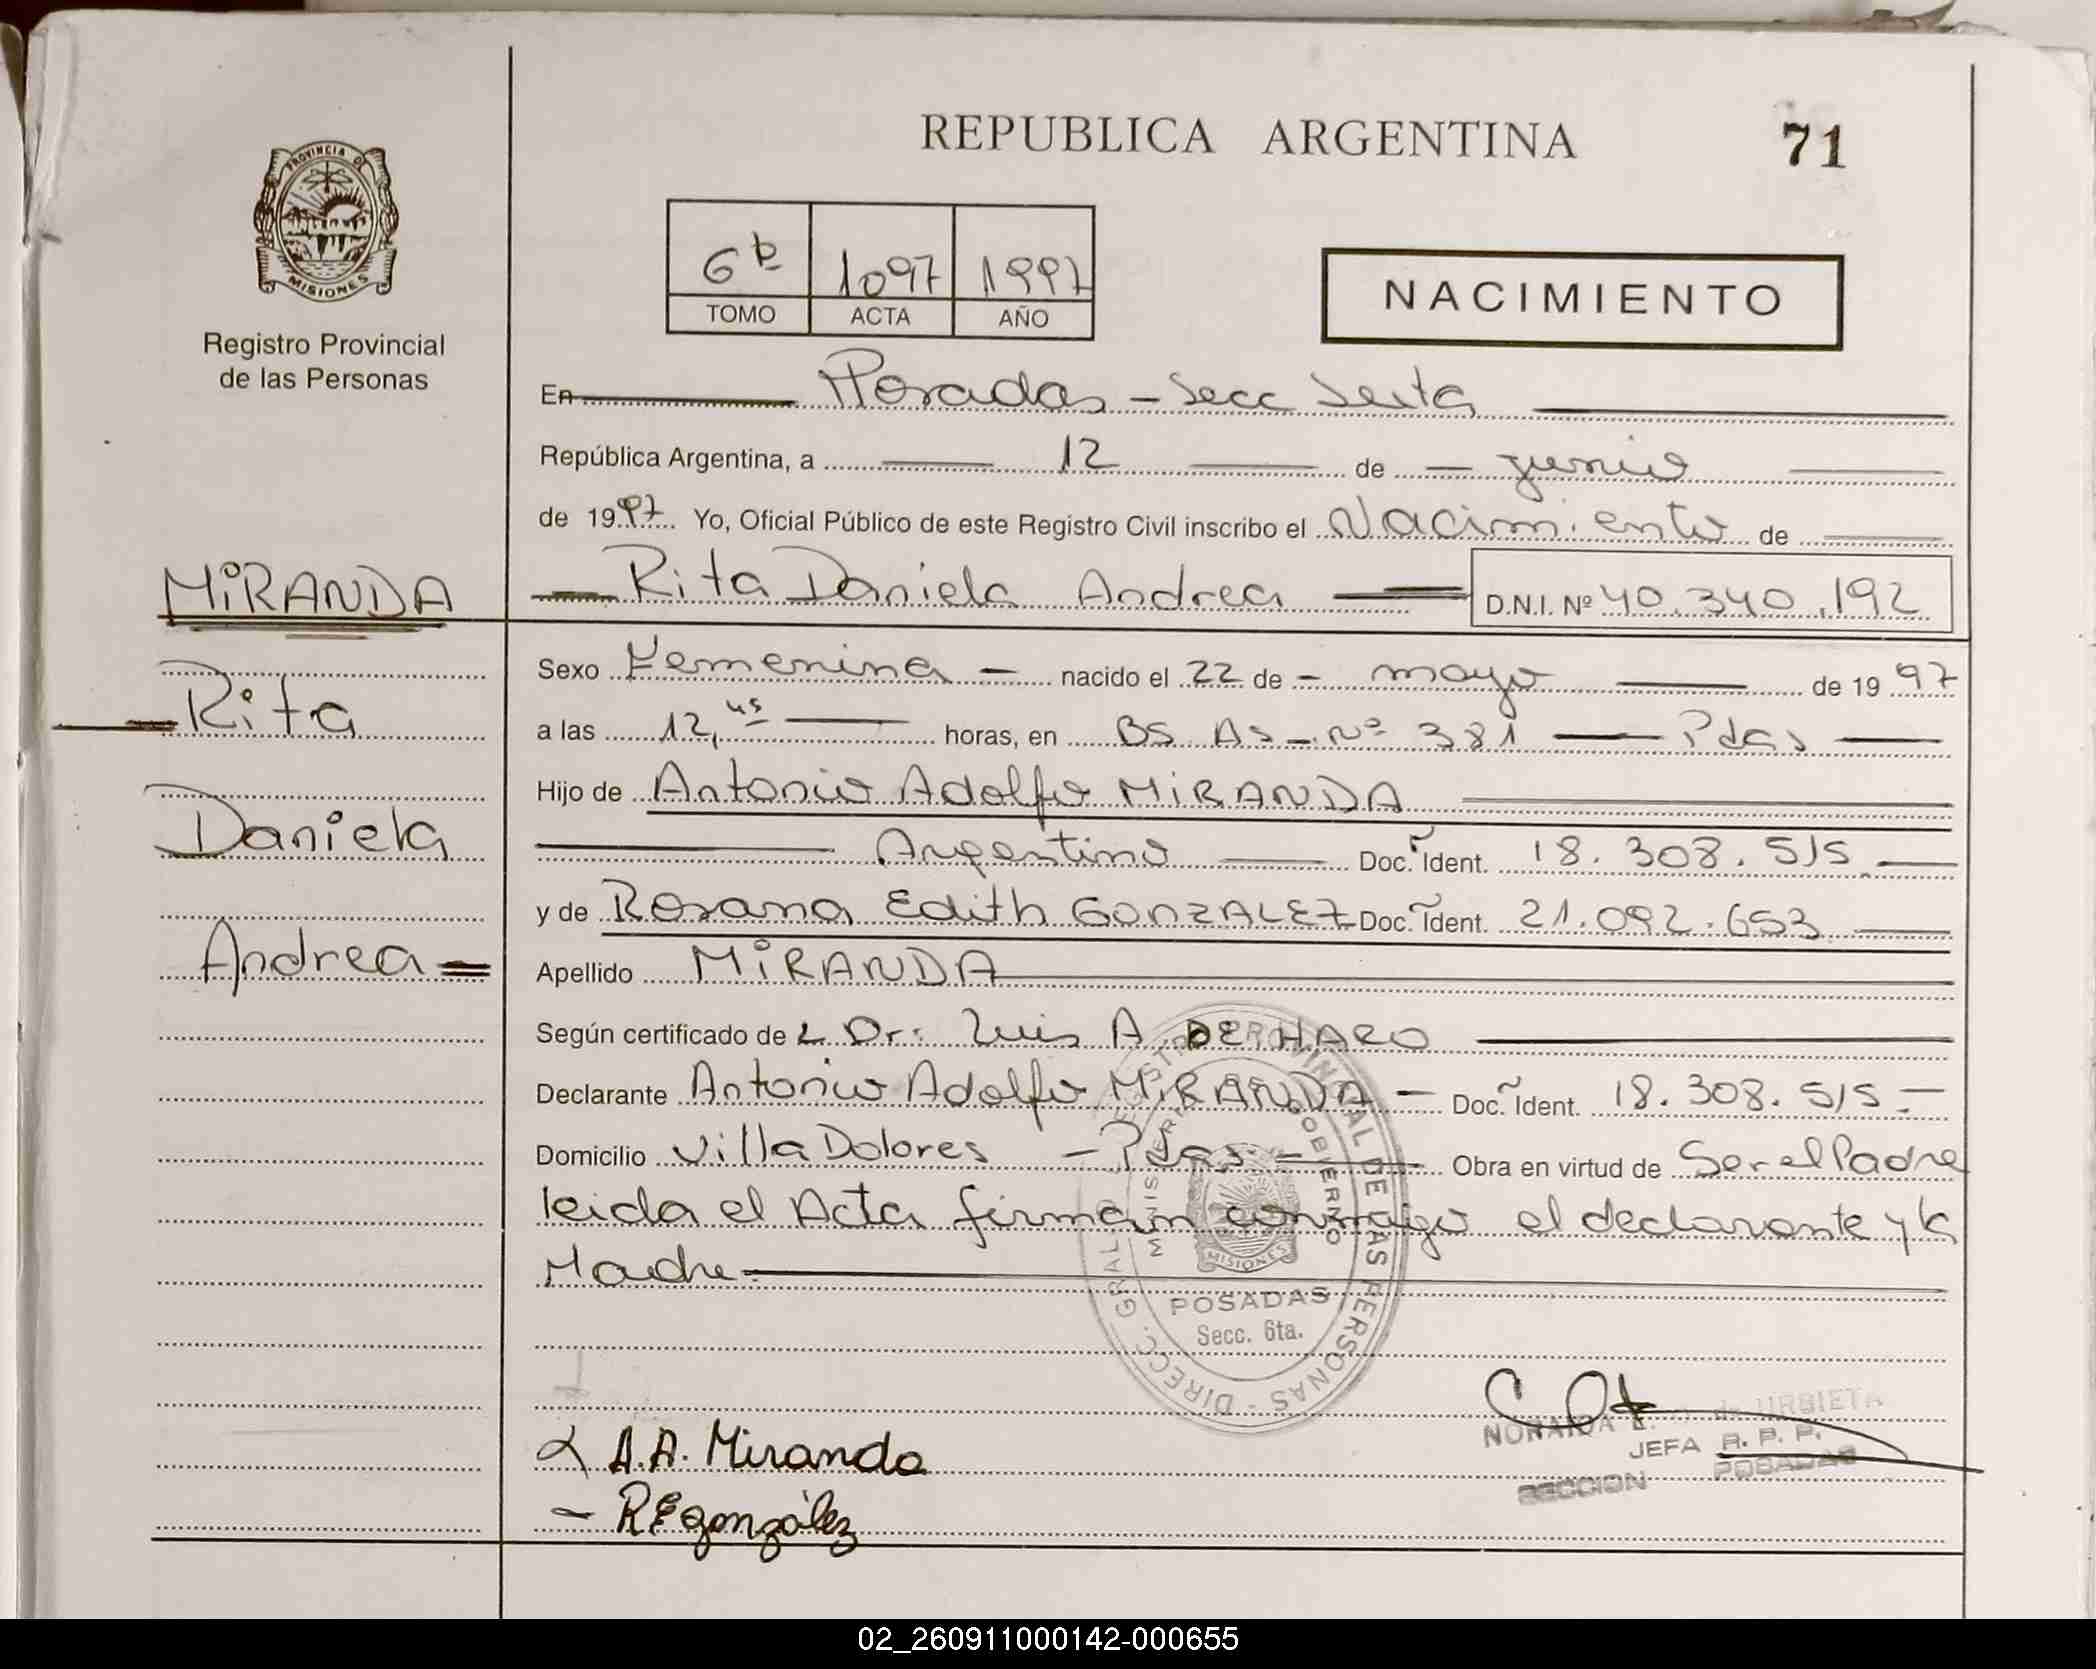 REPUBLICA ARGENTINA
71
PROVINCIA DE
MISIONES
Registro Provincial
de las Personas
6 b 1097 1997
TOMO ACTA AÑO
NACIMIENTO
En Posadas - Secc Sexta
República Argentina, a 12 de junio
de 1997. Yo, Oficial Público de este Registro Civil inscribo el Nacimiento de
MIRANDA Rita Daniela Andrea D.N.I. Nº 40.340.192
Sexo Femenina - nacido el 22 de - mayo de 1997
Rita
a las 12,45 horas, en BS AS - Nº 381 Pdas
Hijo de Antonio Adolfo MIRANDA
Daniela
Argentino Doc. Ident. 18.308.515
y de Rosana Edith GONZALEZ Doc. Ident. 21.092.653
Andrea =
Apellido MIRANDA
Según certificado de L Dr: Luis A DE HARO
Declarante Antonio Adolfo MIRANDA - Doc. Ident. 18.308.515 -
Domicilio Villa Dolores - Pdas - Obra en virtud de Ser el Padre
leida el Acta firman conmigo el declarante y la
Madre
DIRECC. GRAL. REGISTRO PROVINCIAL DE LAS PERSONAS -
MINISTERIO GOBIERNO
MISIONES
POSADAS
Secc. 6ta.
A.A. Miranda
R E gonzález
NORAIDA de URBIETA
JEFA R. P. P.
SECCION POSADAS
02_260911000142-000655